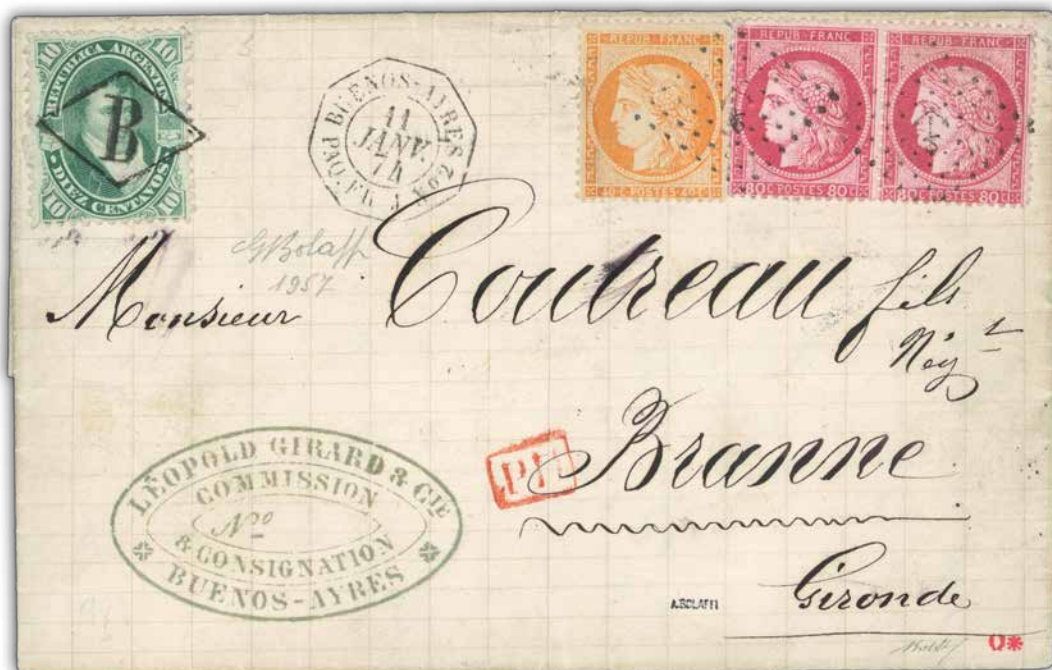 10 REPUBLICA ARGENTINA 10
B
10 DIEZ CENTAVOS 10
BUENOS-AYRES
11
JANV.
74
PAQ. FR. J No 2
REPUB. FRANC.
40 C. POSTES 40 C.
REPUB. FRANC.
80 C. POSTES 80 C.
REPUB. FRANC.
80 C. POSTES 80 C.
GBolaffi
1957
Monsieur Coutreau fils
Négt
Branne
Gironde
P.P.
LÉOPOLD GIRARD & CIE
COMMISSION
No
& CONSIGNATION
BUENOS-AYRES
A.BOLAFFI